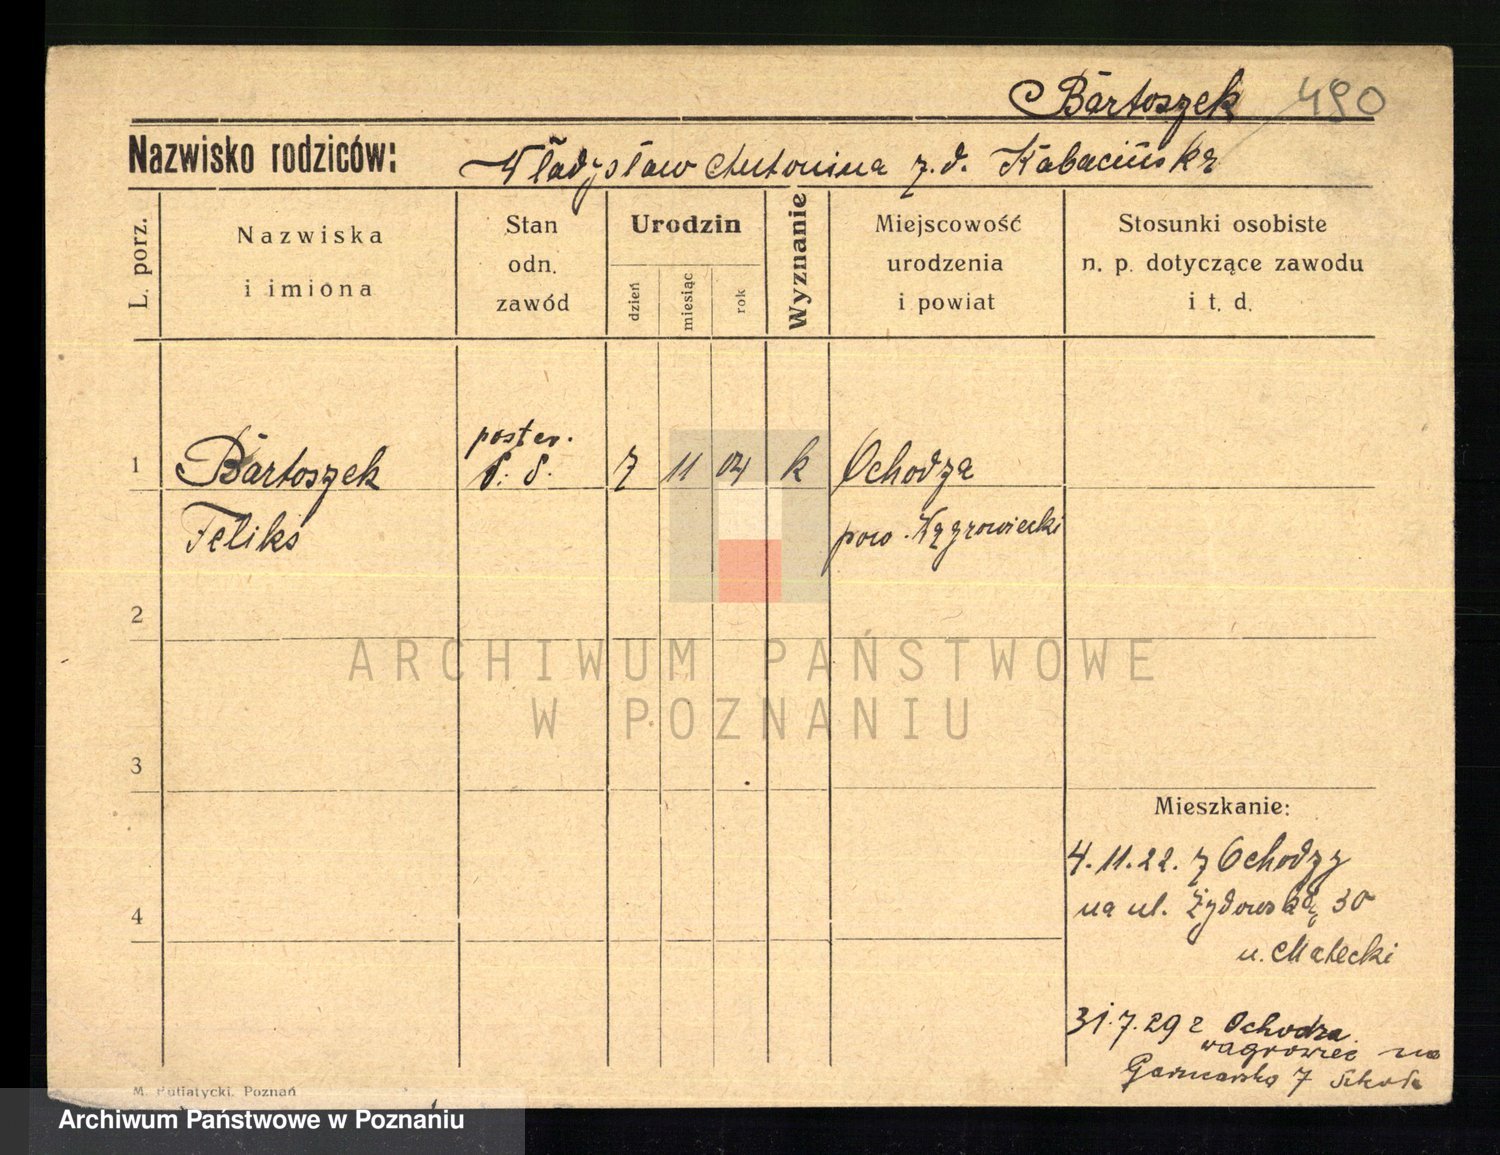 Bartoszek 490
Nazwisko rodziców: Władysław Antonina z.d. Kabacińska
L. porz.
Nazwiska
i imiona
Stan
odn.
zawód
Urodzin
dzień
miesiąc
rok
Wyznanie
Miejscowość
urodzenia
i powiat
Stosunki osobiste
n. p. dotyczące zawodu
i t. d.
1
Bartoszek
Feliks
poster.
7 11 04 k
Ochodza
pow. Wągrowiecki
2
3
4
Mieszkanie:
4.11.22. z Ochodzy
na ul. Żydowską 30
u. Małecki
31.7.29 z Ochodza
wągrowiec na
7
M. Putiatycki, Poznań
ARCHIWUM PAŃSTWOWE
W POZNANIU
Archiwum Państwowe w Poznaniu